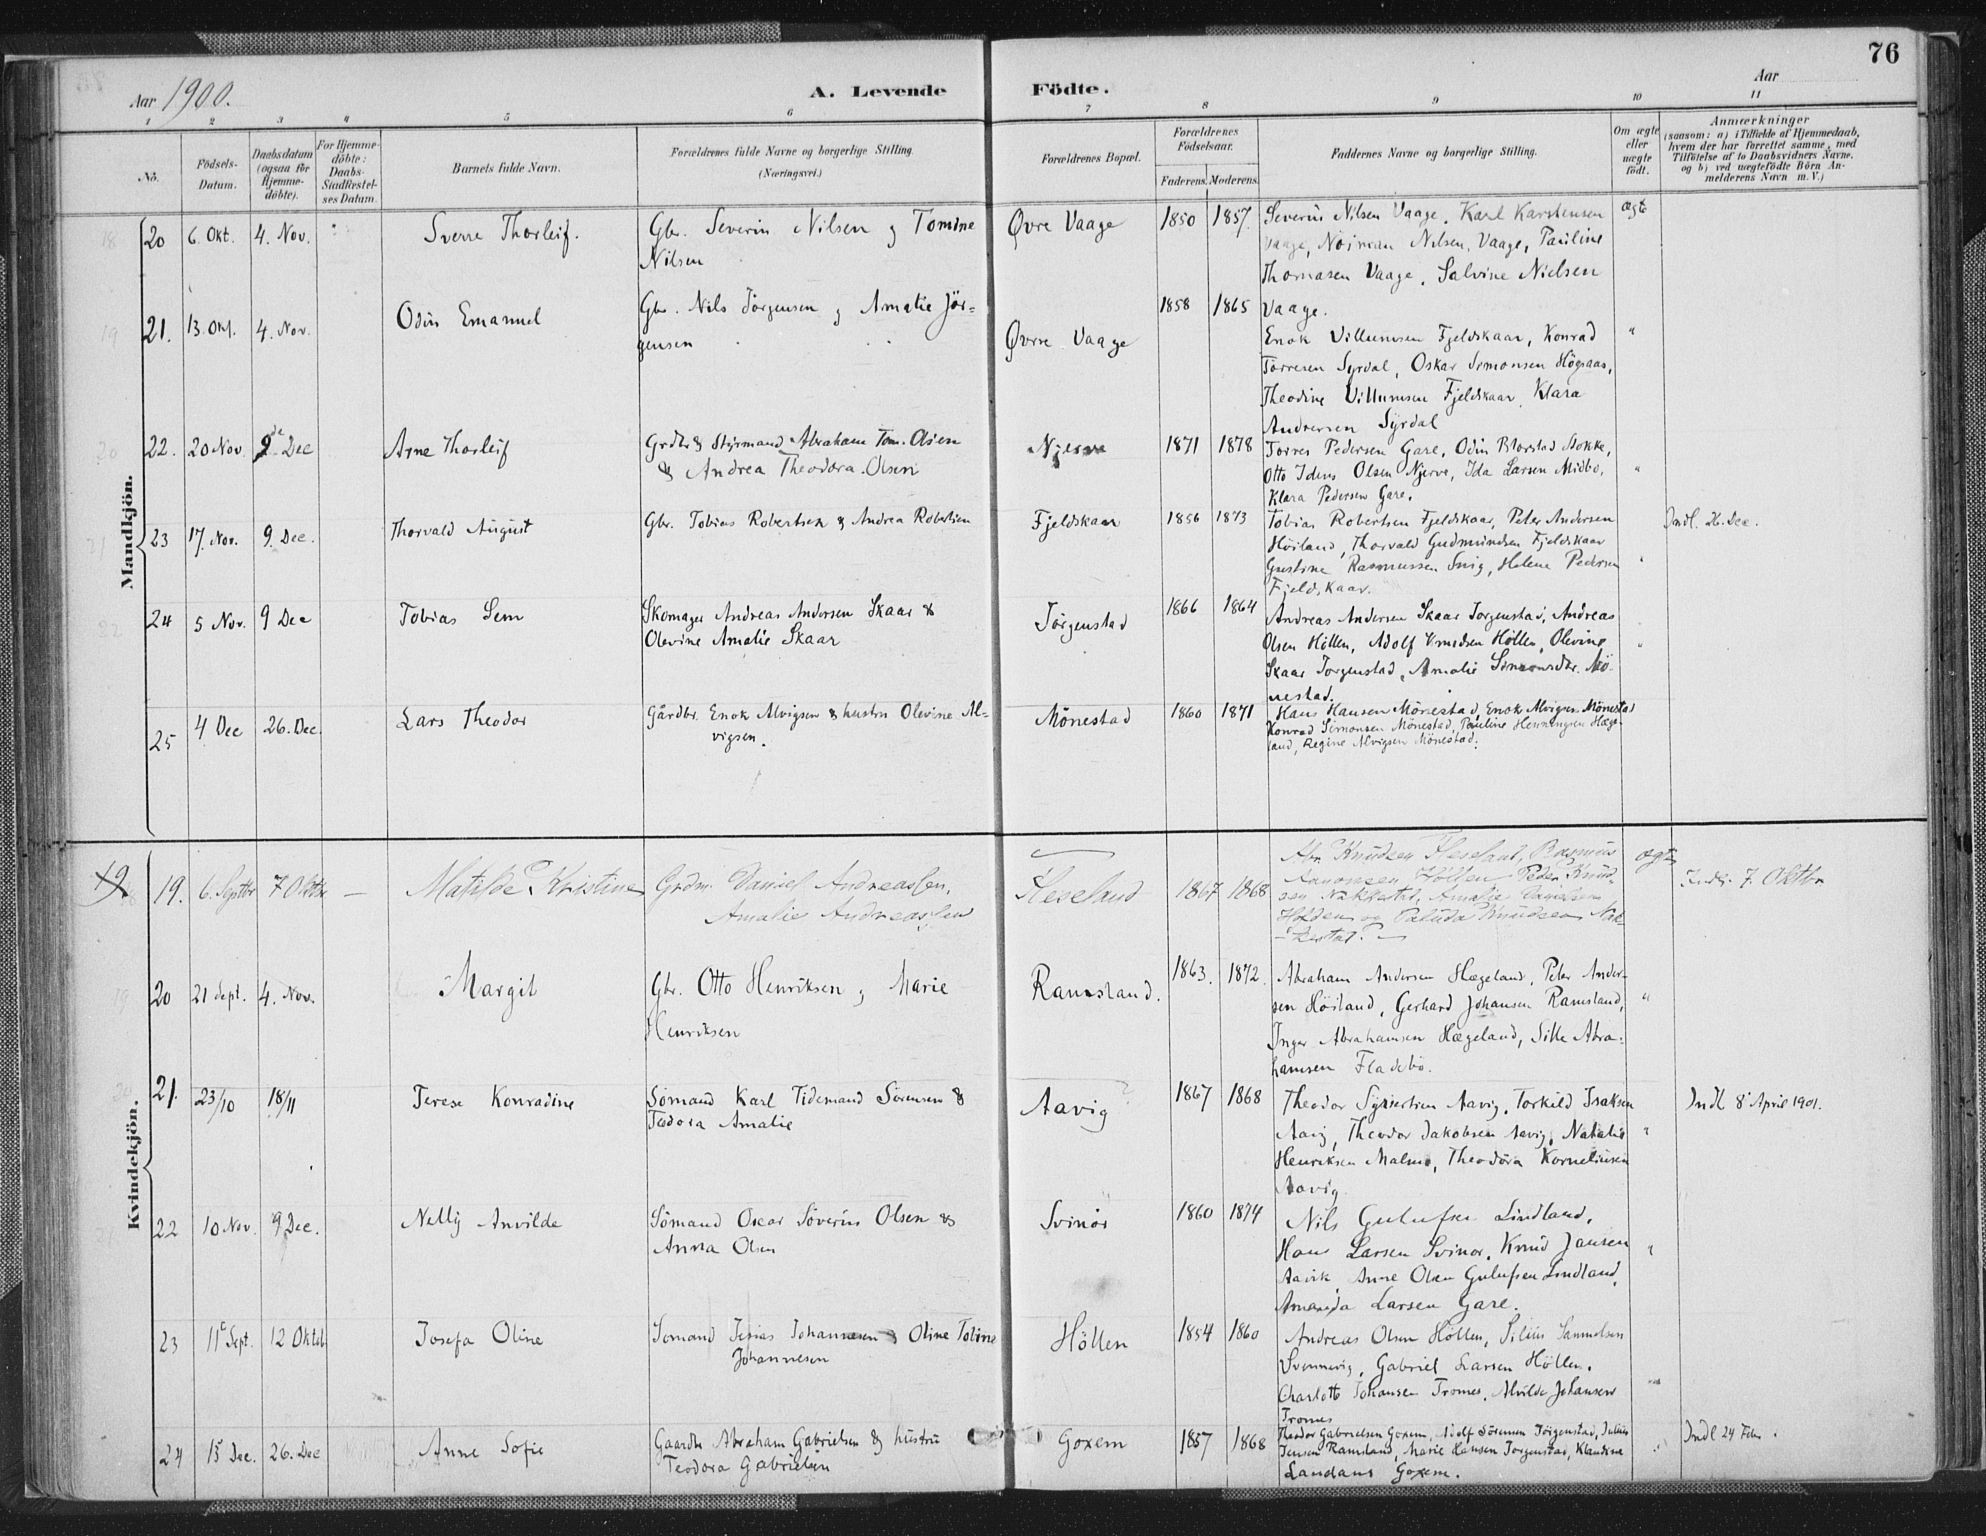 76
Aar 1900.
A. Levende Födte.
Aar
1 2 3 4 5 6 7 8 9 10 11
No.
Födsels-Datum.
Daabsdatum (ogsaa för Hjemme-döbte).
For Hjemme-döbte: Daabs-Stadfæstel-ses Datum.
Barnets fulde Navn.
Forældrenes fulde Navne og borgerlige Stilling. (Næringsvei.)
Forældrenes Bopæl.
Forældrenes Födselsaar.
Faderens. Moderens.
Faddernes Navne og borgerlige Stilling.
Om ægte eller uægte födt.
Anmærkninger
(saasom: a) i Tilfælde af Hjemmedaab,
hvem der har forrettet samme, med
Tilföielse af to Daabsvidners Navne,
og b) ved uægtefödte Börn An-
melderens Navn m. V.)
Mandkjön.
20 6. Okt. 4. Nov. Sverre Thorleif. Gbr. Severin Nilsen g Tomine
Nilsen
Øvre Vaage 1850 1857. Severin Nilsen Vaage, Karl Karstensen ægte
Vaage, Nilsen, Vaage, Pauline
Thomasen Vaage, Salvine Nielsen
Vaage.
21. 13. Okt. 4. Nov. Odin Emanuel Gbr. Nils Jörgensen g Amalie Jör-
gensen
Øvre Vaage 1858 1865
Enok Villumsen Fjeldskaar, Konrad "
Torresen Syrdal, Oskar Simonsen Högsaas,
Theodine Villumsen Fjeldskaar, Klara
Andersen Syrdal
22. 20 Nov. 9de Dec Arne Thorleif Grdbr & Styrmand Abraham Tom. Olsen
& Andrea Theodora Olsen
Njerve 1871 1878 Torres Pedersen Gare, Odin Stokke,
Otto Olsen Njerve, Ida Larsen Midbo, "
Klara Pedersen Gare.
23 17. Nov. 9. Dec. Thorvald August Gbr. Tobias Robertsen & Andrea Robertsen
Fjeldskaar 1856 1873 Tobias Robertsen Fjeldskaar, Peter Andersen Indl. 26. Dec.
Höiland, Thorvald Gudmundsen Fjeldskaar
Gustine Rasmussen Snig, Helene Pedersen "
Fjeldskaar.
24 5 Nov. 9 Dec Tobias Sem Skomager Andreas Andersen Skaar &
Olevine Amalie Skaar
Jörgenstad 1866 1864 Andreas Andersen Skaar Jorgenstad, Andreas
Olsen Höllen, Adolf Knudsen Höllen, Olevine "
Skaar Jorgenstad, Amalie Simonsdtr. Mö-
nestad.
25 4 Dec 26. Dec. Lars Theodor Gårdbr. Enok Alvigsen & hustru Olevine Al-
vigsen.
Mönestad 1860 1871 Hans Hansen Mönestad, Enok Alvigsen Mönestad
Konrad Simonsen Mönestad, Pauline Henningsen Hæge-
land, Regine Alvigsen Mönestad.
Kvindekjön.
19. 6. Septbr 7 Oktbr — Matilde Kristine Grdm. Daniel Andreassen,
Amalie Andreassen
Heseland 1867 1868 Abr. Knudsen Heseland, Rasmus ægte
Aanonsen Höllen Peder Knud- Indl. 7. Oktbr
sen Nakkestad, Amalie Danielsen
Holden og Knudsen Nak-
kestad. —
20 21 Sept. 4. Nov. Margit Gbr. Otto Henriksen g Marie
Henriksen
Ramsland. 1863. 1872. Abraham Andersen Hægeland, Peter Ander-
sen Höiland, Gerhard Johansen Ramsland, "
Inger Abrahamsen Hægeland, Sille Abra-
hamsen Fladebo.
21. 23/10 18/11 Terese Konradine Sömand Karl Tidemand Sörensen &
Teodora Amalie
Aavig 1867 1868 Theodor Aavig, Torkild Isaksen Indl 8 April 1901.
Aavig, Theodor Jakobsen Aavig, Natalie "
Henriksen Malmö, Theodora Korneliusen
Aavig
22 10 Nov. 9. Dec. Nelly Anvilde Sömand Oscar Söverin Olsen &
Anna Olsen
Svinör 1860 1874 Nils Gulufsen Lindland,
Hans Larsen Svinor, Knud Jansen "
Aavik, Anne Olsen Gulufsen Lindland,
Amanda Larsen Gare.
23 11 Sept. 12 Oktob Josefa Oline Sömand Johannesen & Oline Toline
Johannesen
Höllen 1854 1860 Andreas Olsen Höllen, Samuelsen
Svennevig, Gabriel Larsen Höllen.
Charlotte Johansen Tromes, Alvilde Johansen
Tromes
24 15 Dec. 26. Dec Anne Sofie Gaardbr Abraham Gabrielsen & hustru
Teodora Gabrielsen
Goxem 1857 1868 Theodor Gabrielsen Goxem, Adolf Sörensen Jörgenstad, Julius Indl 24 Febr.
Jensen Ramsland, Marie Hansen Jorgenstad, Klaudine
Landaas Goxem.